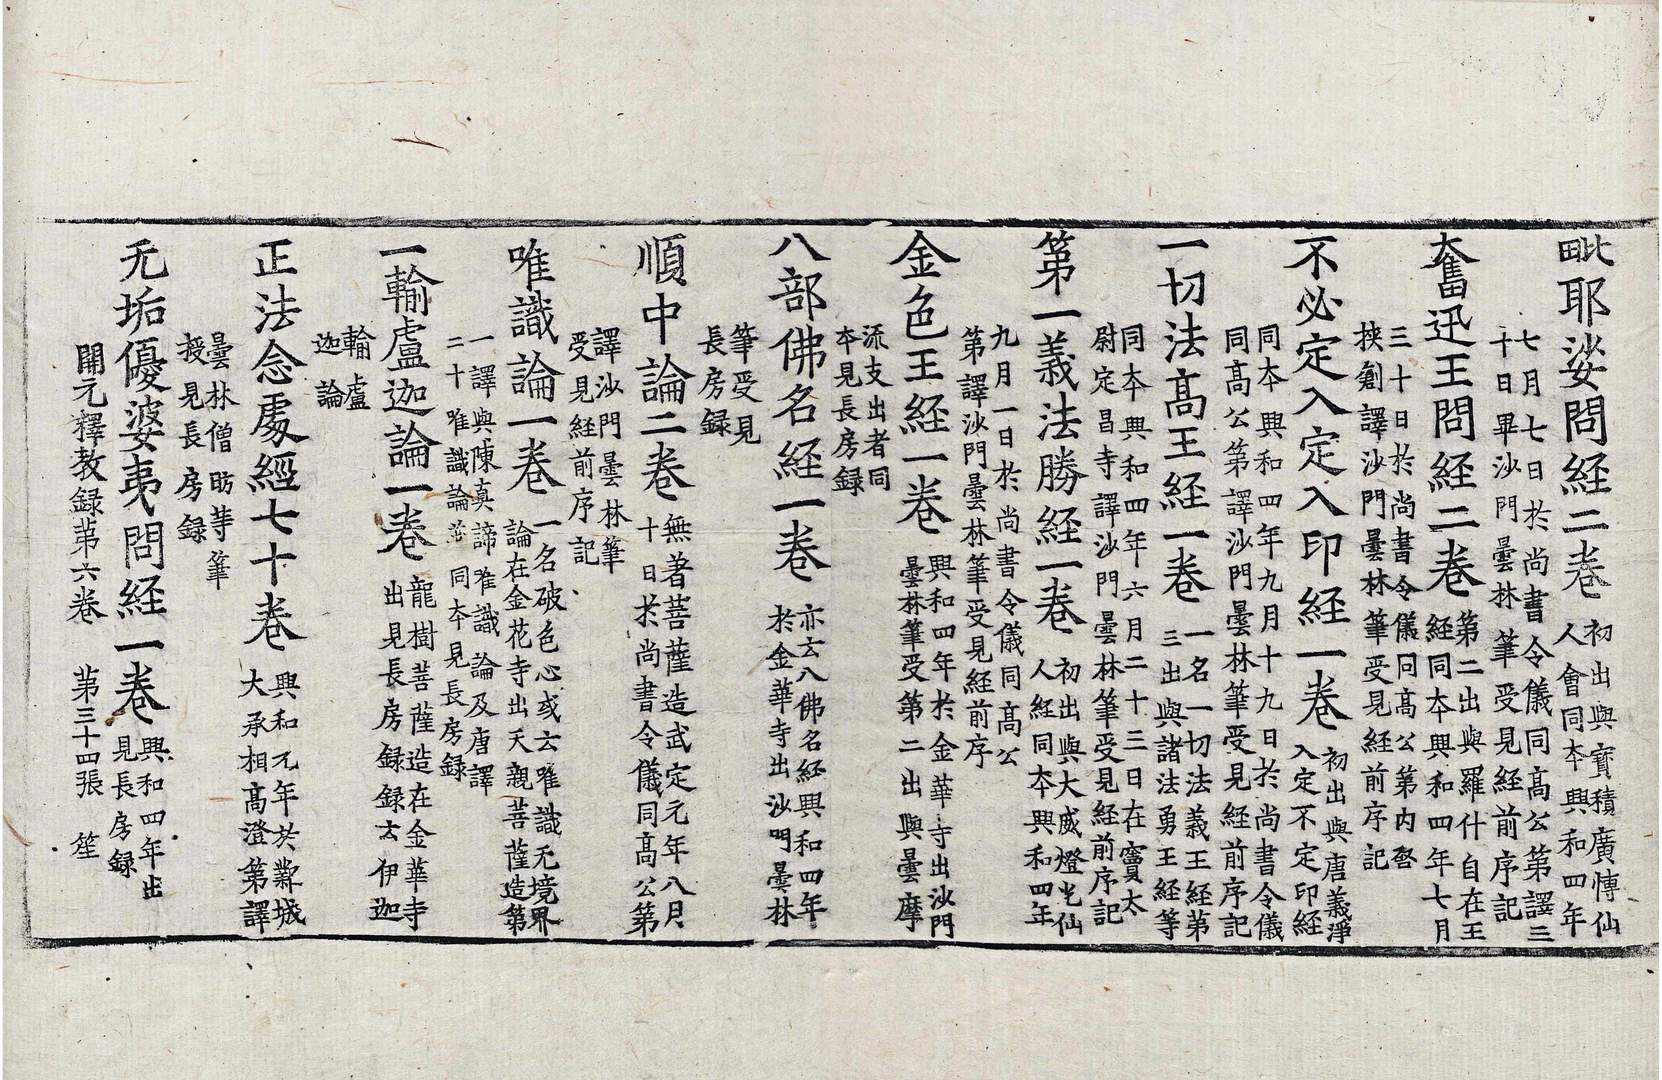 毗耶娑問経二巻 初出與寶積廣愽仙
人會同夲興和四年
七月七日於尚書令儀同髙公第譯三
十日畢沙門曇林筆受見経前序記
奮迅王問経二巻 第二出與羅什自在王
経同夲興和四年七月
三十日於尚書令儀同髙公第内啓
挾創譯沙門曇林筆受見経前序記
不必定入定入印経一巻 初出與唐義淨
入定不定印経
同夲興和四年九月十九日於尚書令儀
同髙公第譯沙門曇林筆受見経前序記
一切法髙王経一巻 一名一切法義王経第
三出與諸法勇王経等
同夲興和四年六月二十三日在竇太
尉定昌寺譯沙門曇林筆受見経前序記
第一義法勝経一巻 初出與大威燈光仙
人経同夲興和四年
九月一日於尚書令儀同髙公
第譯沙門曇林筆受見経前序
金色王経一巻 興和四年於金華寺出沙門
曇林筆受第二出與曇摩
流支出者同
夲見長房録
八部佛名経一巻 亦云八佛名経興和四年
於金華寺出沙門曇林
筆受見
長房録
順中論二巻 無著菩薩造武定元年八月
十日於尚書令儀同髙公第
譯沙門曇林筆
受見経前序記
唯識論一巻 一名破色心或云唯識无境界
論在金花寺出天親菩薩造第
一譯與陳真諦唯識論及唐譯
二十唯識論並同夲見長房録
一輸盧迦論一巻 龍樹菩薩造在金華寺
出見長房録録云伊迦
輸盧
迦論
正法念處經七十巻 興和元年於鄴城
大承相髙澄第譯
曇林僧昉䓁筆
授見長房録
无垢優婆夷問経一巻 興和四年出
見長房録
開元釋教録第六巻 第三十四張 笙